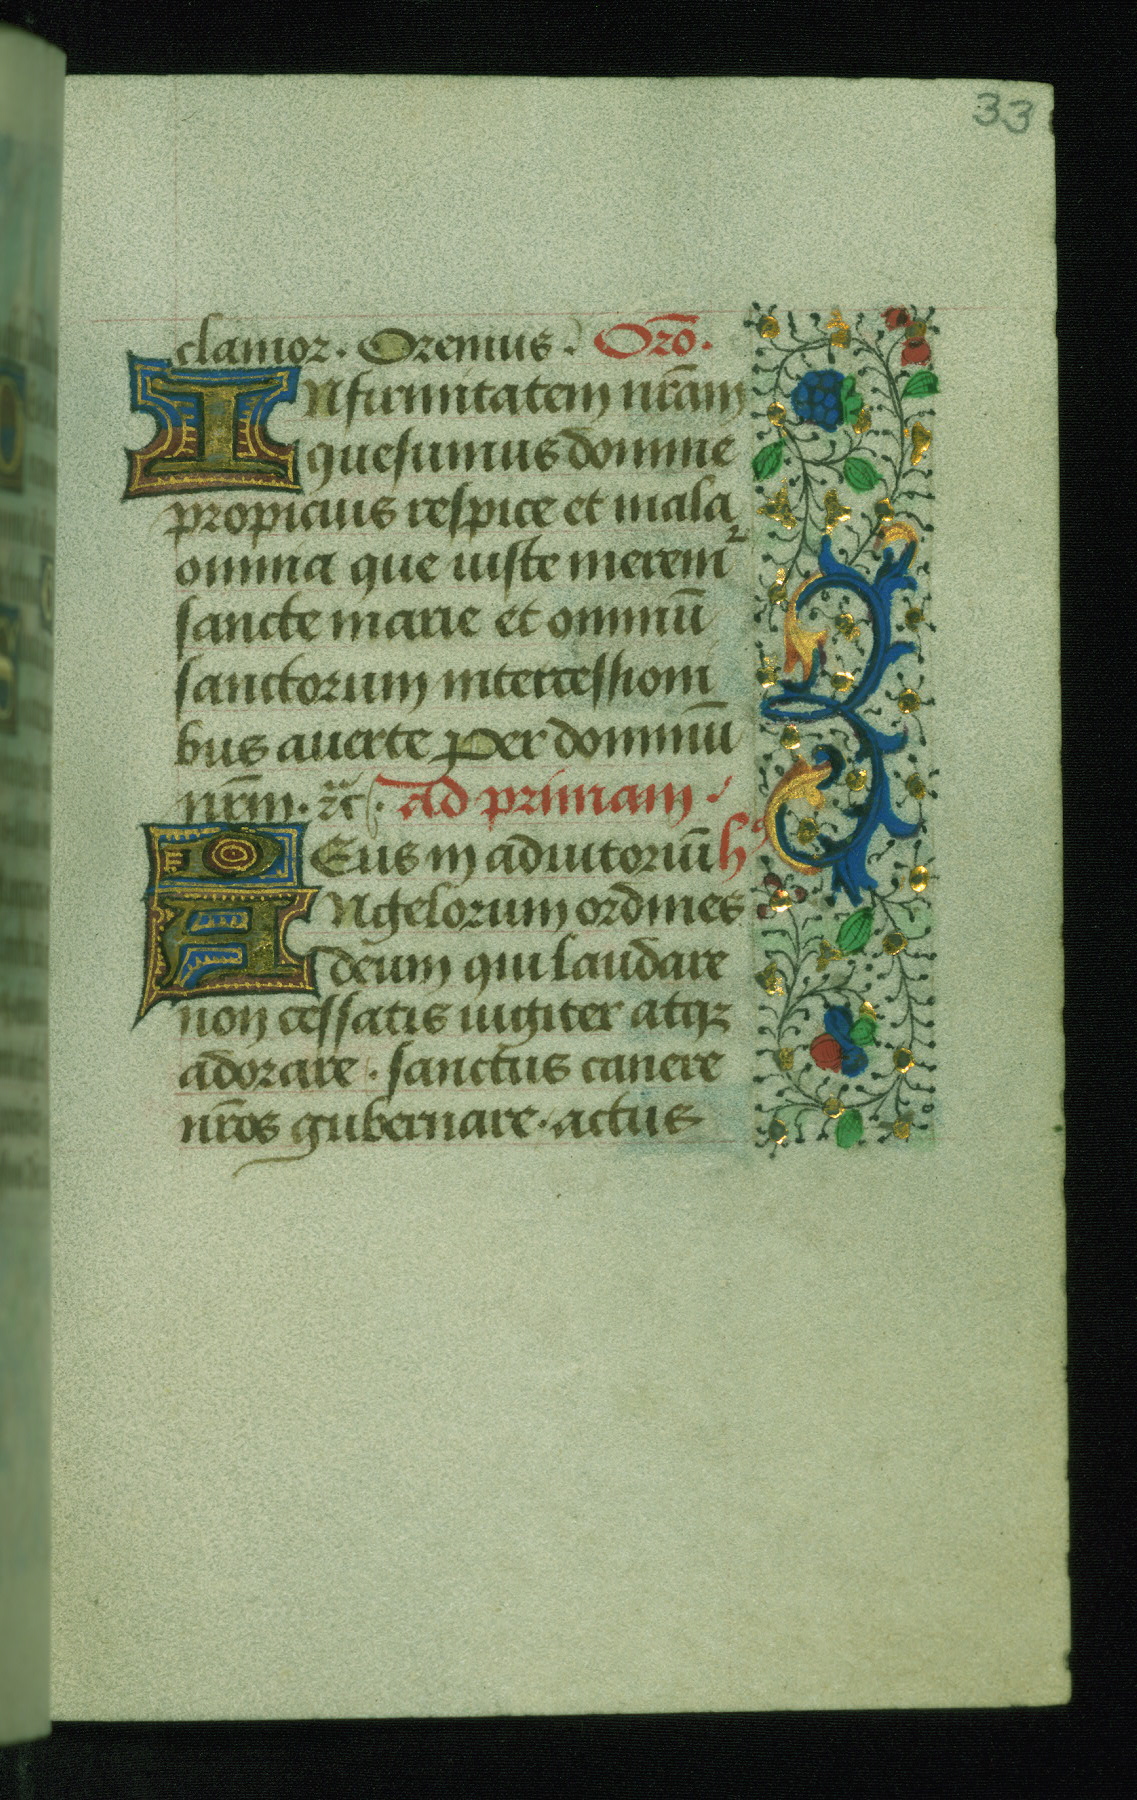 33
clamor. Oremus. Orõ.
INfirmitatem nr̃am
quesumus domine
propicius respice et mala
omnia que iuste meremꝛ
sancte marie et omniũ
sanctorum intercessioni
bus auerte Per dominũ
nrm̃. ⁊c̃. ad primam.
DEus in adiutoriũ hꝰ
ANgelorum ordines
deum qui laudare
non cessatis iugiter atqꝫ
adorare. sanctus canere
nr̃os gubernare. actus